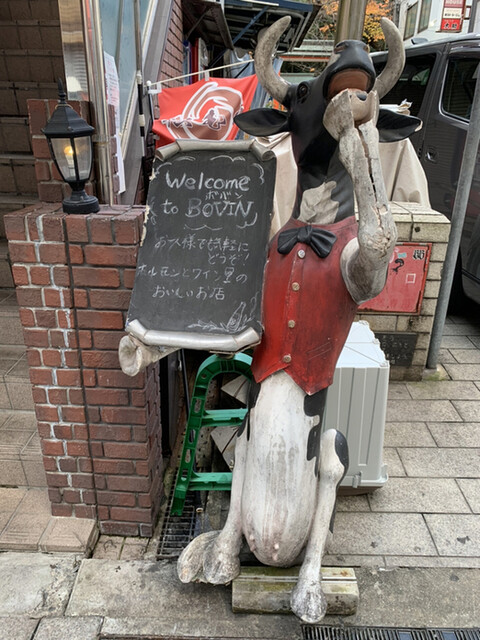 Welcome
ボバン
to BOVIN
お一人様でも気軽に
どうぞ!
ホルモンとワイン星の
おいしいお店